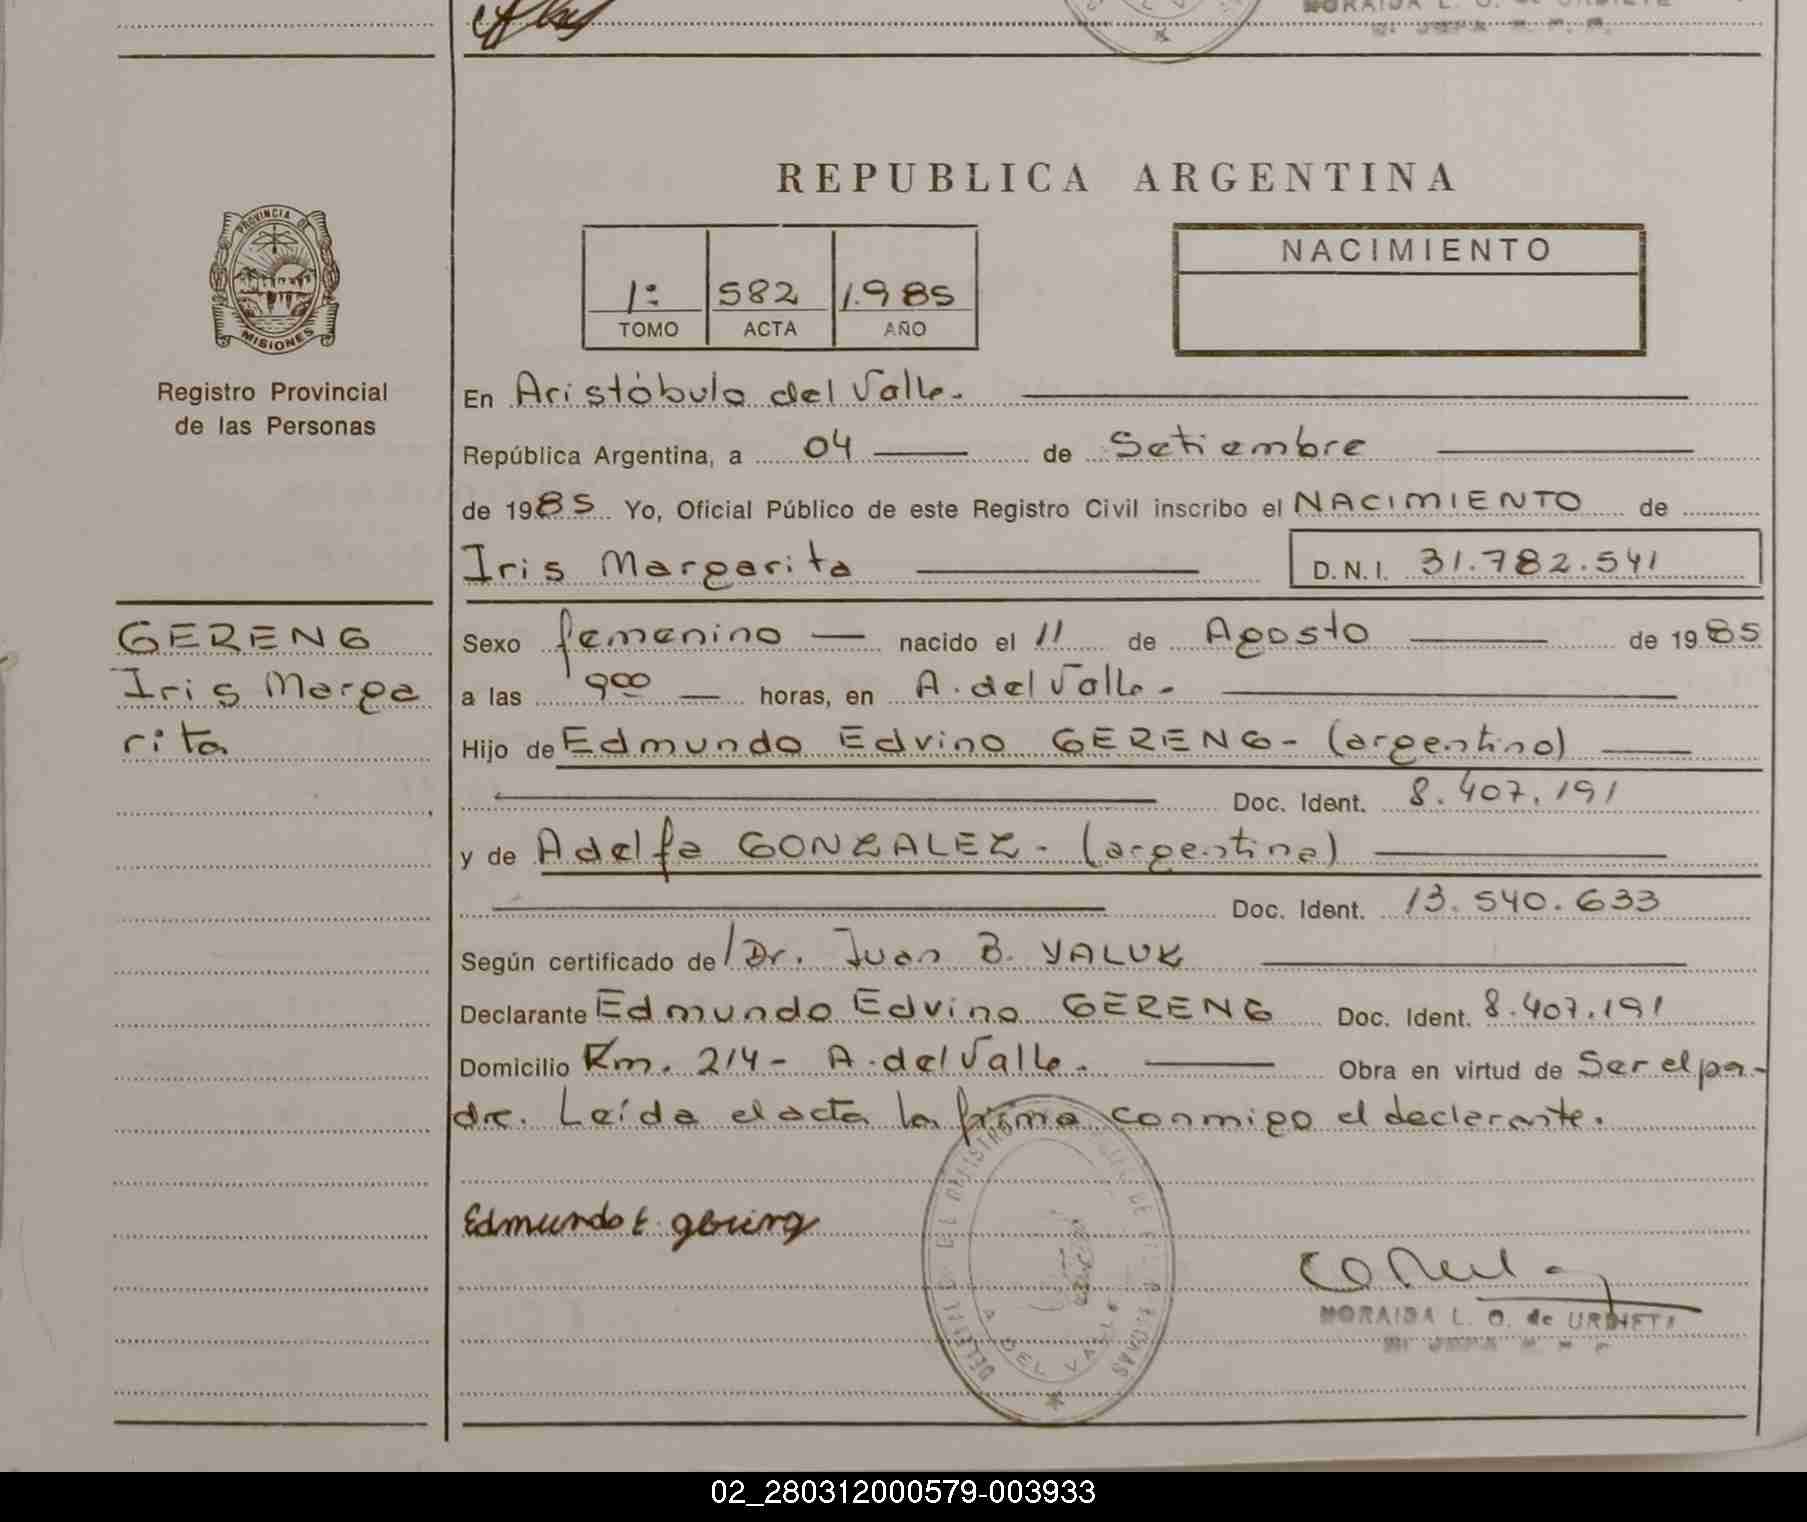 MORAIDA L. O. de URDIETE
REPUBLICA ARGENTINA
PROVINCIA DE
MISIONES
Registro Provincial
de las Personas
1º 582 1.985
TOMO ACTA AÑO
NACIMIENTO
En Aristóbulo del Valle.
República Argentina, a 04 de Setiembre
de 1985 Yo, Oficial Público de este Registro Civil inscribo el NACIMIENTO de
Iris Margarita D.N.I. 31.782.541
GERENG
Iris Marga
rita
Sexo femenino nacido el 11 de Agosto de 1985
a las 900 horas, en A. del Valle.
Hijo de Edmundo Edvino GERENG - (argentino)
Doc. Ident. 8.407.191
y de Adelfa GONZALEZ - (argentina)
Doc. Ident. 13.540.633
Según certificado de Dr. Juan B. YALUK
Declarante Edmundo Edvino GERENG Doc. Ident. 8.407.191
Domicilio Km. 214 - A. del Valle. Obra en virtud de Ser el pa-
dre. Leída el acta la firma conmigo el declarante.
Edmundo E. gering
A DEL VALLE
MORAIDA L. O. de URDIETE
02_280312000579-003933